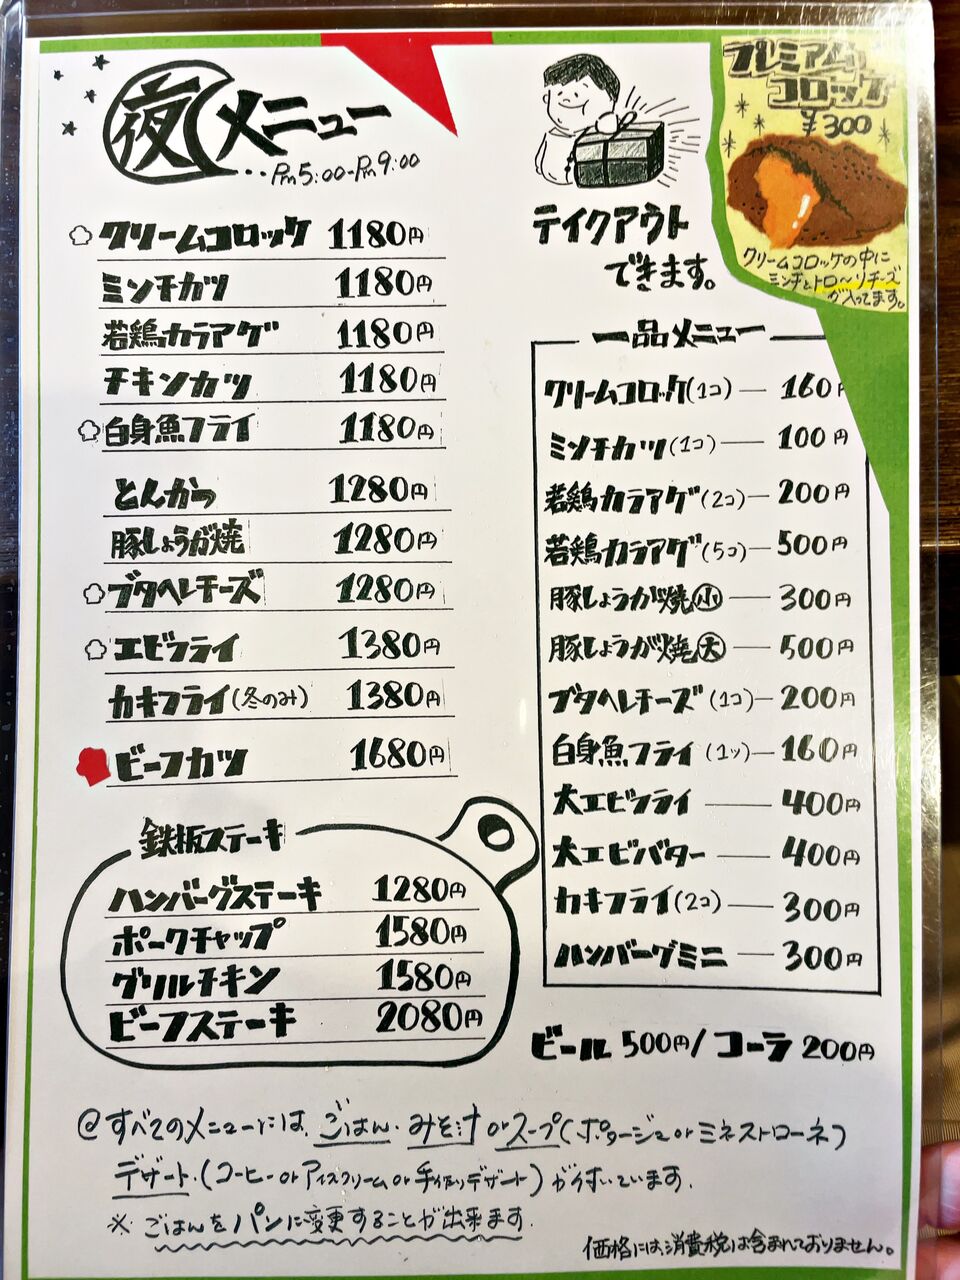 夜メニュー
...Pm5:00-Pm9:00
クリームコロッケ 1180円
ミンチカツ 1180円
若鶏カラアゲ 1180円
チキンカツ 1180円
白身魚フライ 1180円
とんかつ 1280円
豚しょうが焼 1280円
ブタヘレチーズ 1280円
エビフライ 1380円
カキフライ(冬のみ) 1380円
ビーフカツ 1680円
鉄板ステーキ
ハンバーグステーキ 1280円
ポークチャップ 1580円
グリルチキン 1580円
ビーフステーキ 2080円
テイクアウト
できます。
プレミアム
コロッケ
¥300
クリームコロッケの中に
ミンチとトロ〜リチーズ
が入ってます。
一品メニュー
クリームコロッケ(1コ)—160円
ミンチカツ(1コ)—100円
若鶏カラアゲ(2コ)—200円
若鶏カラアゲ(5コ)—500円
豚しょうが焼㊙小—300円
豚しょうが焼大—500円
ブタヘレチーズ(1コ)—200円
白身魚フライ(1ッ)—160円
大エビフライ—400円
大エビバター—400円
カキフライ(2コ)—300円
ハンバーグミニ—300円
ビール 500円/コーラ 200円
@すべてのメニューには、ごはん、みそ汁orスープ(ポタージュorミネストローネ)
デザート、(コーヒーorアイスクリームor手作りデザート)がついています。
※ごはんをパンに変更することが出来ます。
価格には、消費税は含まれておりません。